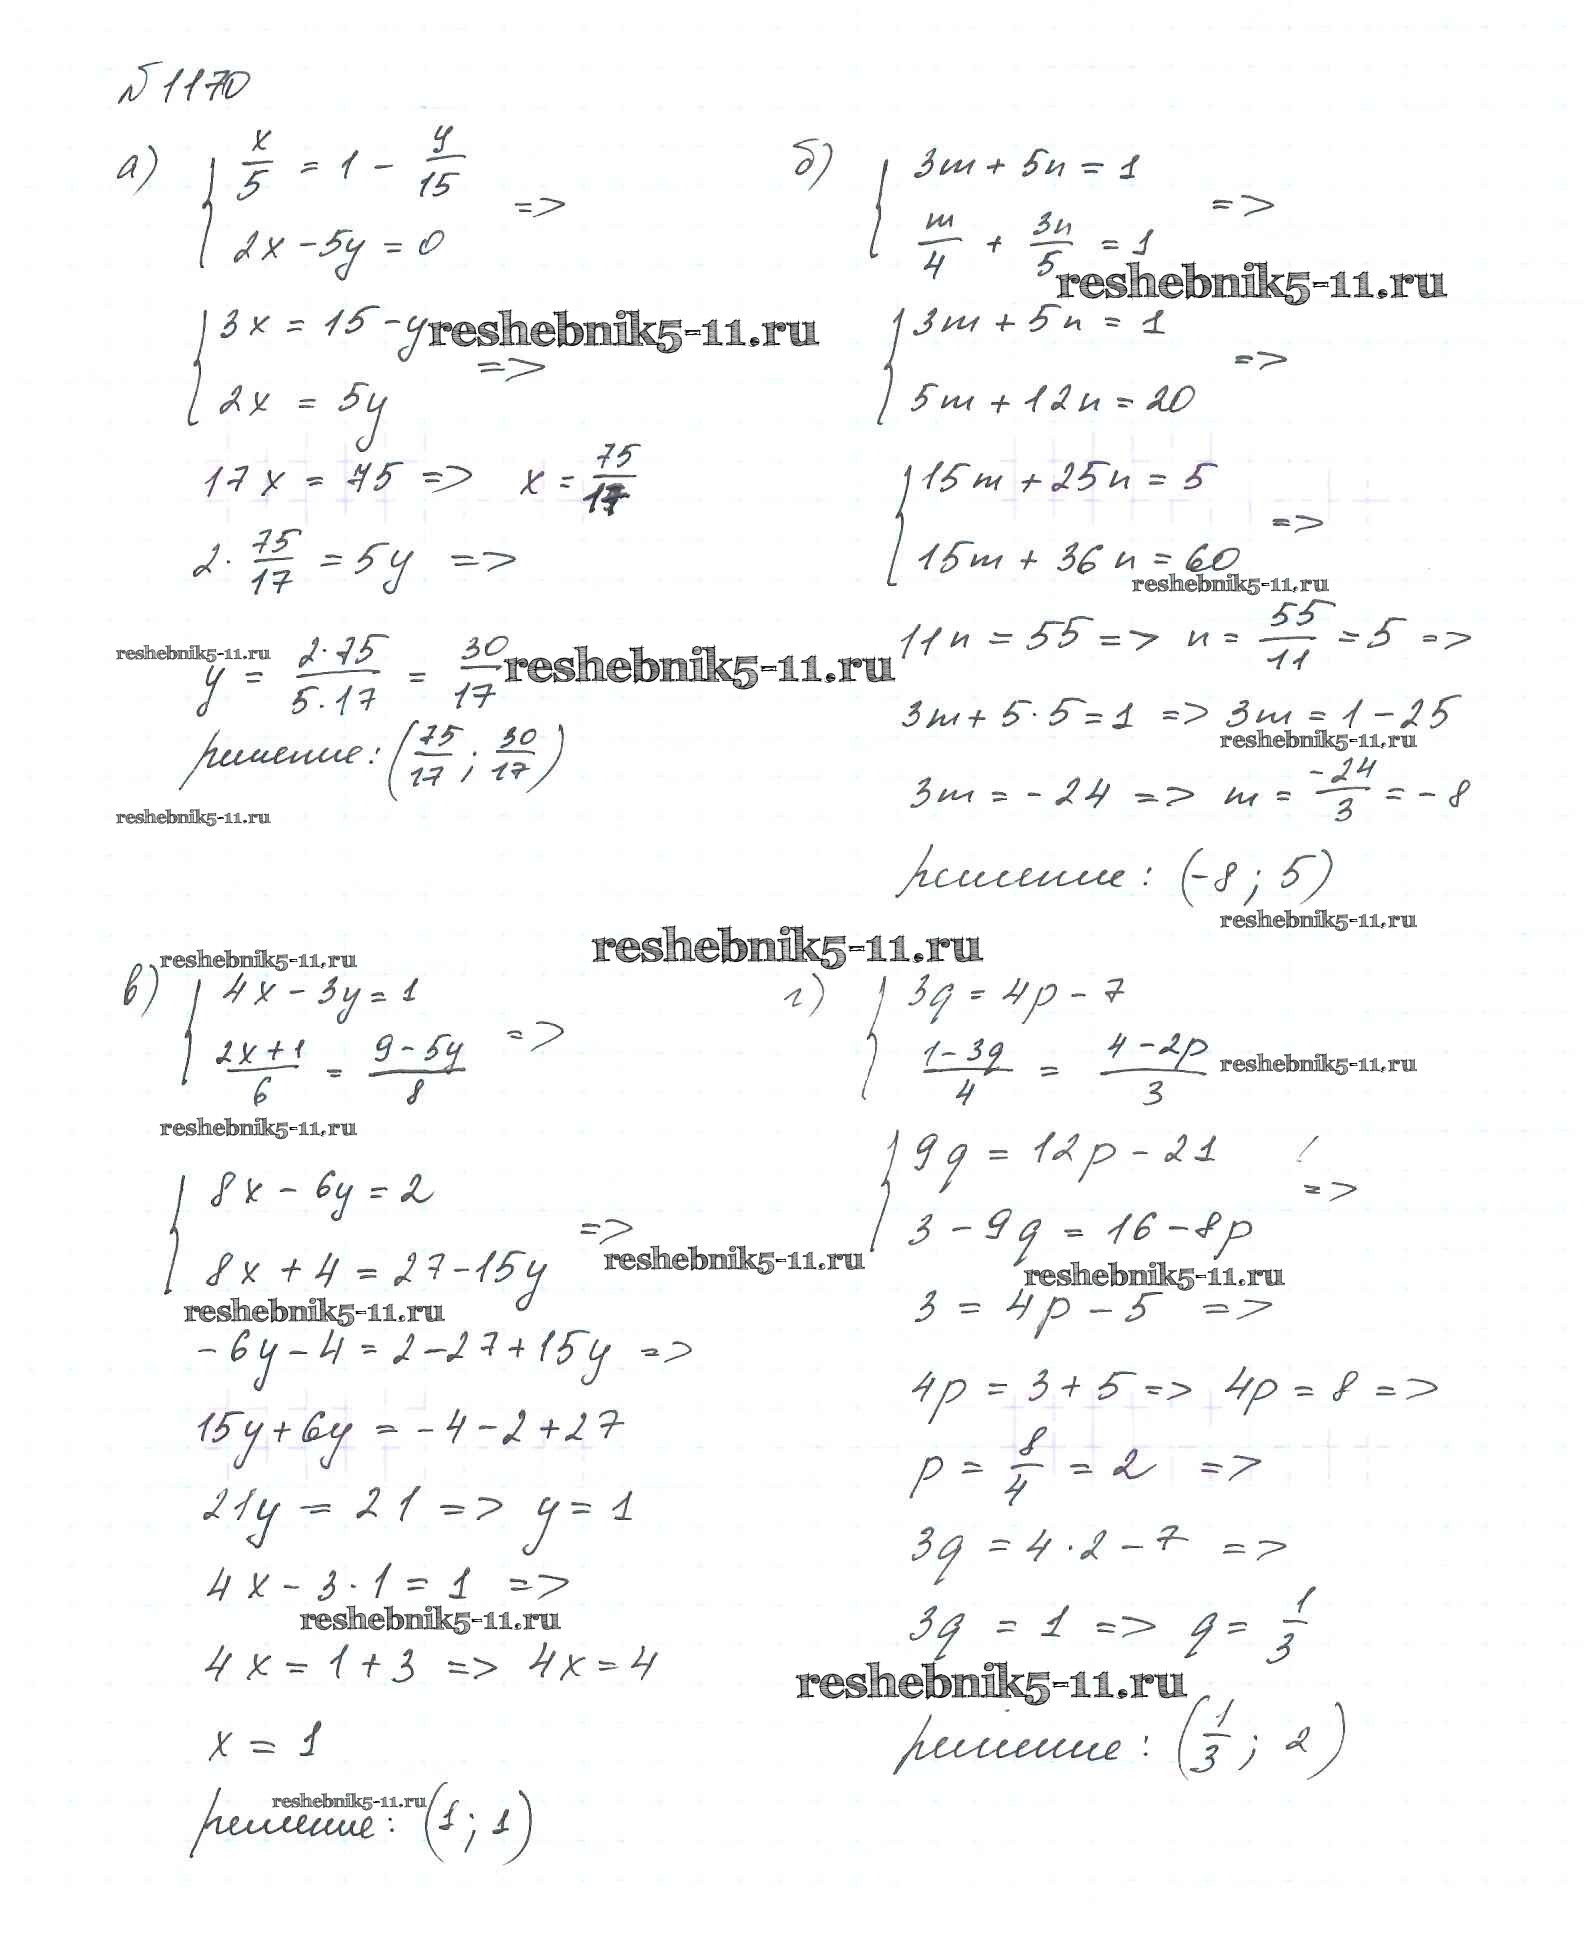 № 1170
а) { x/5 = 1 - y/15
2x - 5y = 0 =>
{ 3x = 15 - y reshebnik5-11.ru
2x = 5y =>
17x = 75 => x = 75/17
2 · 75/17 = 5y =>
reshebnik5-11.ru
y = 2·75/5·17 = 30/17 reshebnik5-11.ru
решение: (75/17 ; 30/17)
reshebnik5-11.ru
б) { 3m + 5n = 1
m/4 + 3n/5 = 1 =>
reshebnik5-11.ru
{ 3m + 5n = 1
5m + 12n = 20 =>
{ 15m + 25n = 5
15m + 36n = 60 =>
reshebnik5-11.ru
11n = 55 => n = 55/11 = 5 =>
3m + 5·5 = 1 => 3m = 1 - 25
reshebnik5-11.ru
3m = -24 => m = -24/3 = -8
решение: (-8 ; 5)
reshebnik5-11.ru
reshebnik5-11.ru
reshebnik5-11.ru
в) { 4x - 3y = 1
2x+1/6 = 9-5y/8 =>
reshebnik5-11.ru
{ 8x - 6y = 2
8x + 4 = 27 - 15y =>
reshebnik5-11.ru
reshebnik5-11.ru
-6y - 4 = 2 - 27 + 15y =>
15y + 6y = -4 - 2 + 27
21y = 21 => y = 1
4x - 3·1 = 1 =>
reshebnik5-11.ru
4x = 1 + 3 => 4x = 4
x = 1
reshebnik5-11.ru
решение: (1 ; 1)
г) { 3q = 4p - 7
1-3q/4 = 4-2p/3 reshebnik5-11.ru
{ 9q = 12p - 21
3 - 9q = 16 - 8p =>
reshebnik5-11.ru
3 = 4p - 5 =>
4p = 3 + 5 => 4p = 8 =>
p = 8/4 = 2 =>
3q = 4·2 - 7 =>
3q = 1 => q = 1/3
reshebnik5-11.ru
решение: (1/3 ; 2)